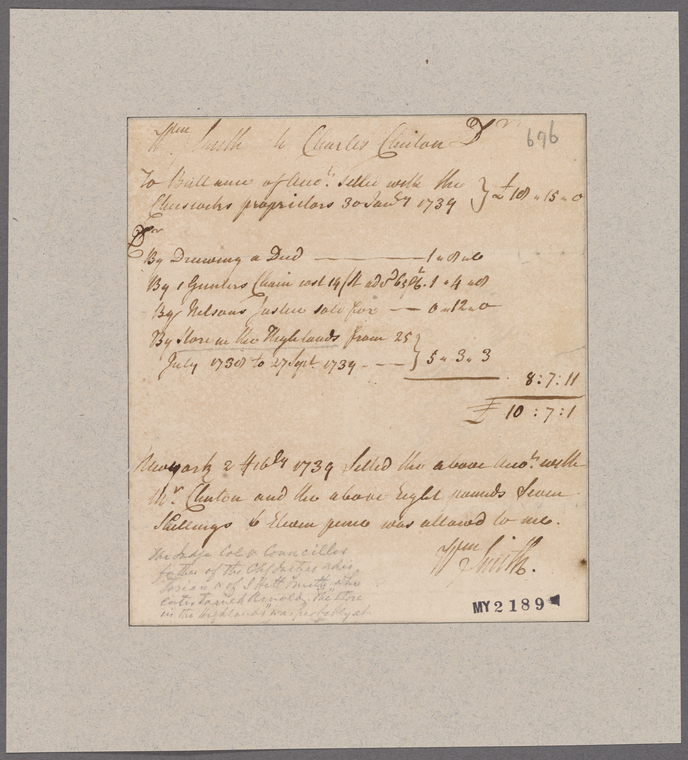 Wm Smith to Charles Clinton Dr
696
To Ballance of Acot. settled with the
proprietors 30 Janry 1739 } £ 18 „ 15 „ 0
Cr
By Drawing a Deed — 1 „ 8 „ 0
By 1 Gunters Chain cost 14/ 1 „ 4 „ 8
By Nelsons Justice sold for — 0 „ 12 „ 0
By Store in the Highlands from 25
July 1738 to 27 Sept. 1739 — } 5 „ 3 „ 3
8 : 7 : 11
£ 10 : 7 : 1
Newyork 2 1739 Setled the above Acot. with
Mr. Clinton and the above Eight pounds Seven
Shillings & Eleven pence was allowed to me.
Wm Smith.
the Judge Col & Councillor
father of the
of Smith who
Arnold. The store
in the highlands was probably at
MY 2189